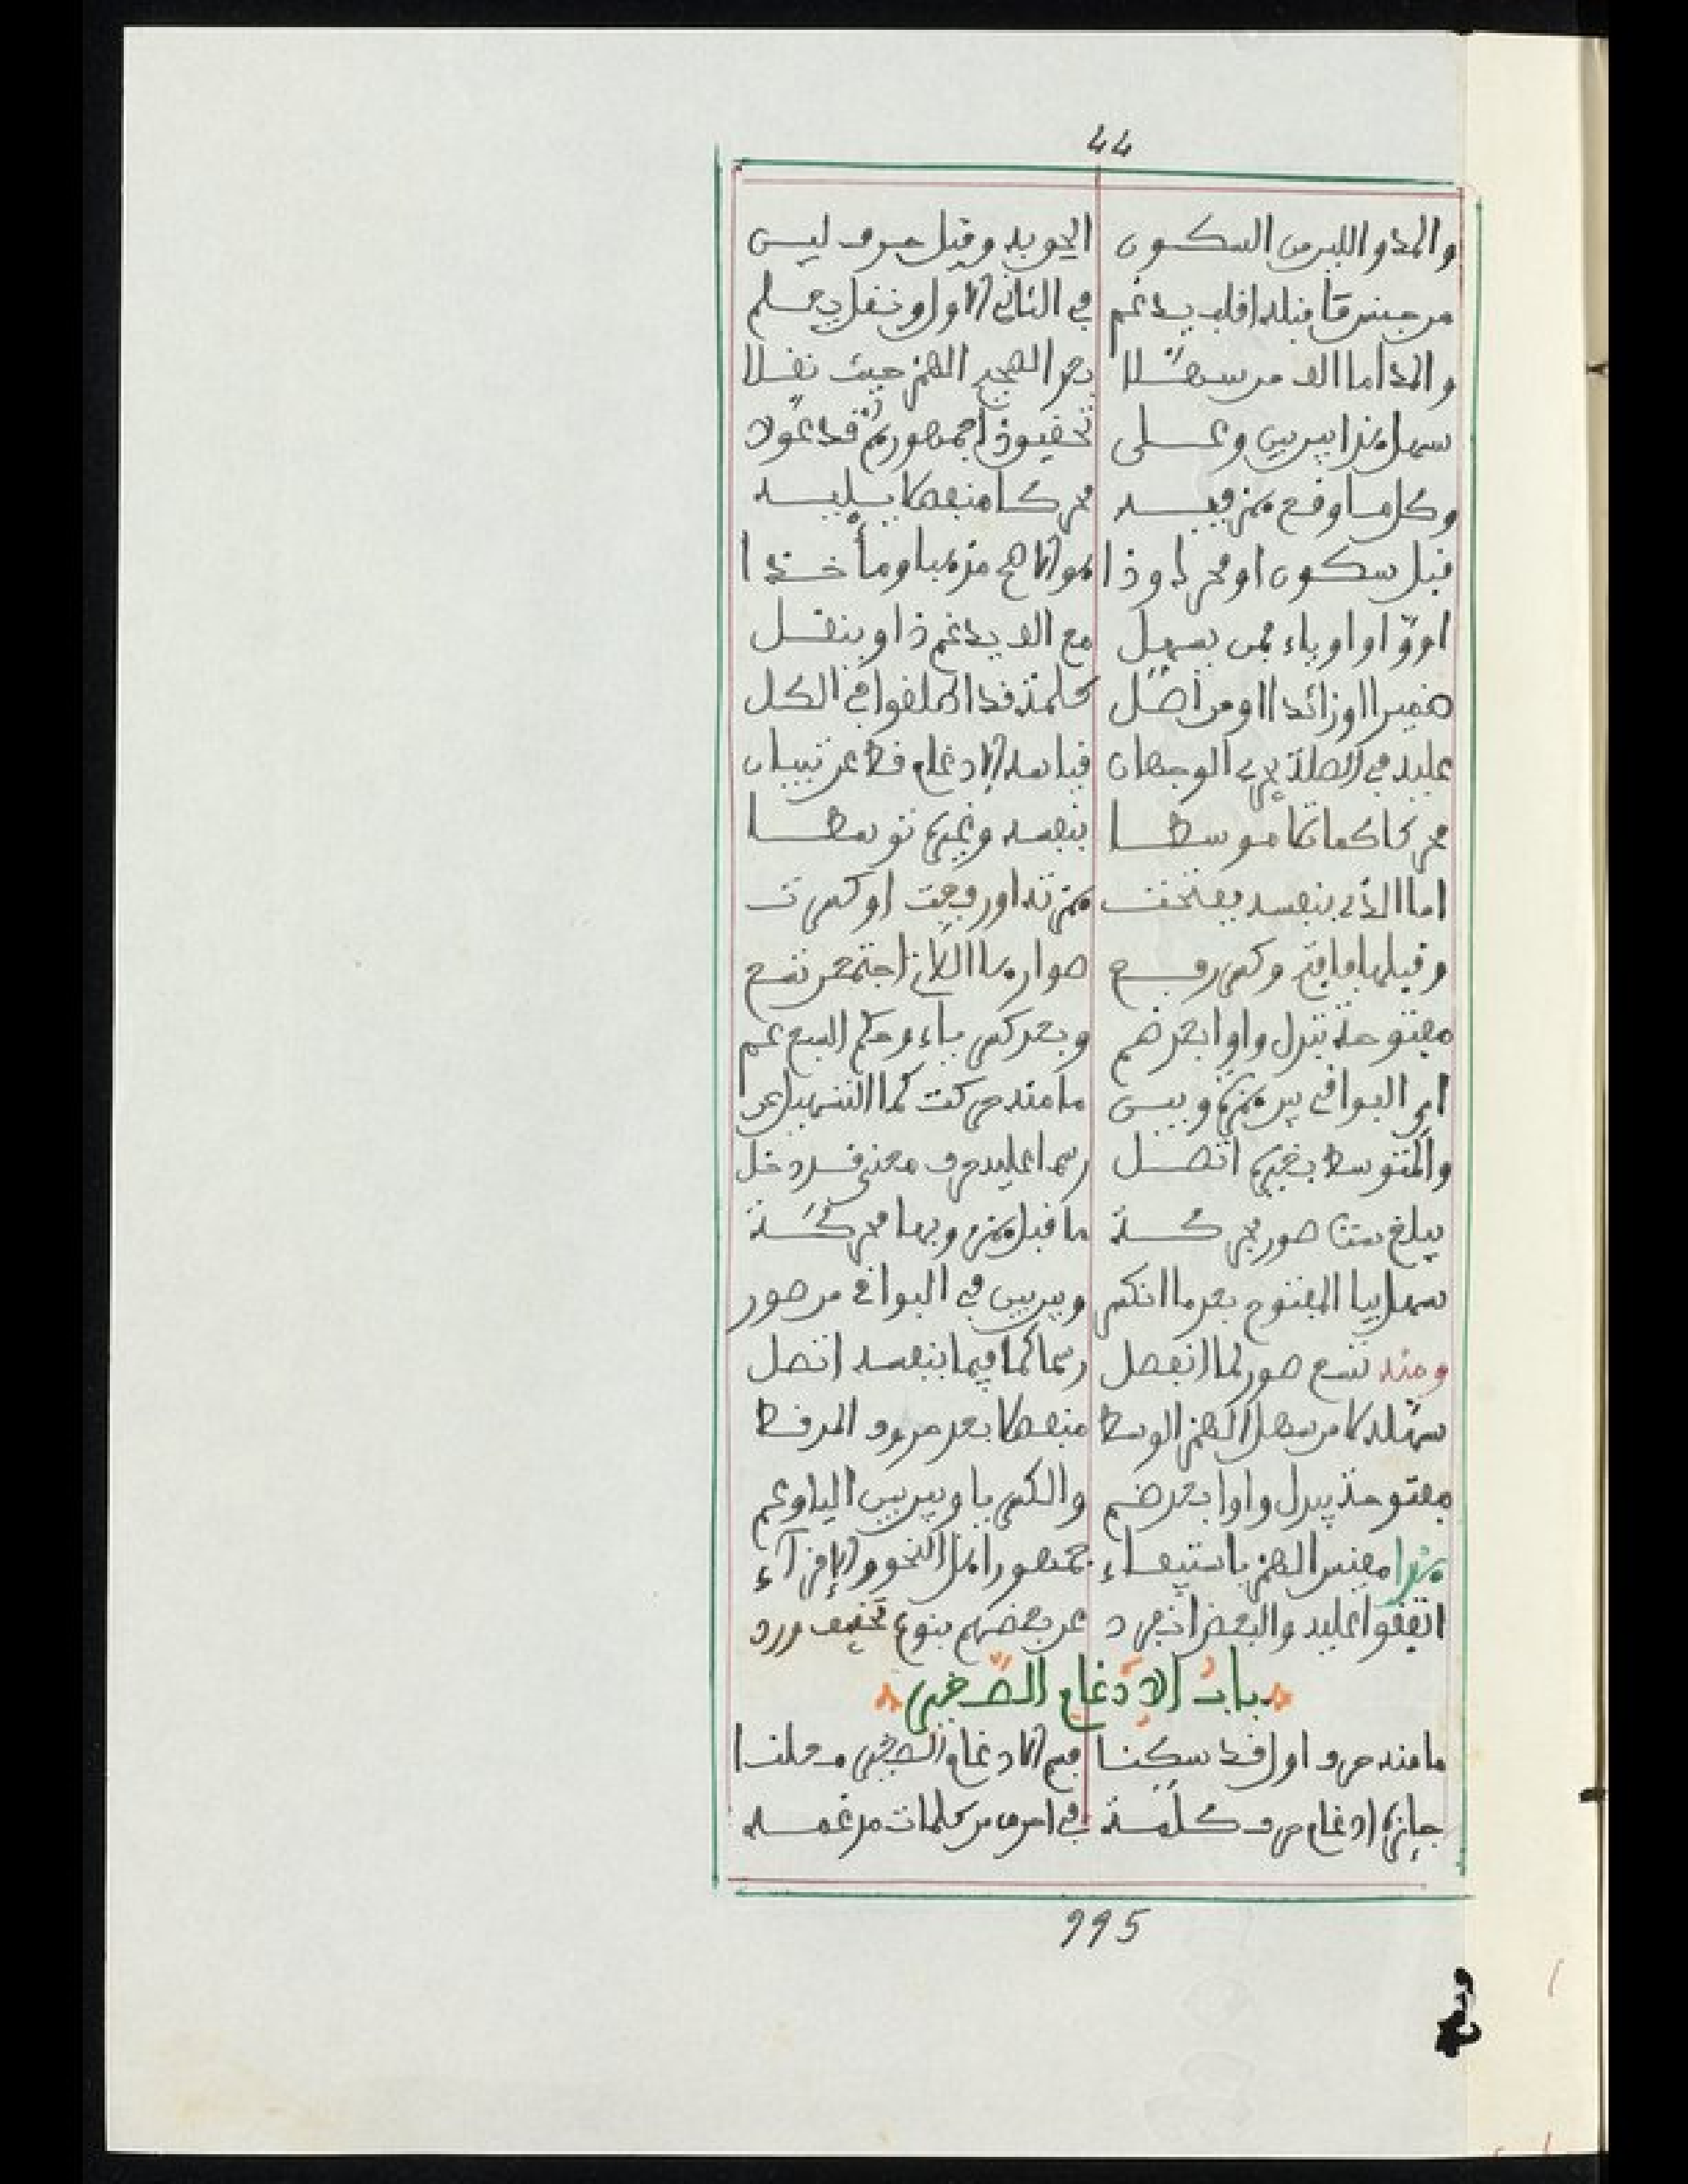 44
والمد واللين من السكون الحق به وقيل حرف ليس
من جنس ما قبله اقلب يدغم في الثاني الاول ونقل يعلم
والمد اما الف من سهلا دع الصحيح الهمز حيث نقلا
سهل هذا بين بين وعلى تخفيف ذا جمهورهم قد عولا
وكل ما وقع همز فيه محركا منفصلا يليه
قبل سكون او محرك وذا هو الاصح مذهبا ومأخذا
او واوا او ياء فمن يسهل مع الف يدغم ذا وينقل
ضميرا او زائدا او من اصل كلمة قد اطلقوا في الكل
عليه في الصلة يجري الوجهان قياسه الادغام قط عن تبيان
محركا كما اتى موسطا بنفسه وغيره توسطا
اما الذي بنفسه ففتحت همزته او رفعت او كسرت
وقبلها ما فتح وكسر رفع صوارها اللاتي اجتمعن تسع
مفتوحة تبدل واوا بعد ضم وبعد كسر ياء وحكم السبع عم
اي البواقي بين همزة وبين ما منه حركت كما التسهيل عن
والمتوسط بغيره اتصل رسما عليه حرف معنى قد دخل
يبلغ ستا صور محركة ما قبل همز وبها محركة
سهل بيا المفتوح بعد ما انكسر وبين بين في البواقي من صور
ومنه تسع صور لما انفصل رسما كما فيما بنفسه اتصل
سهله كا من سهل الهمز الوسط منفصلا بعد حروف المد قط
مفتوحة يبدل واوا بعد ضم والكسر يا وبين بين الباو عم
هذا مقيس الهمز باستيفاء جمهور اهل النحو والاقراء
اتفقوا عليه والبعض انفرد عن بعضهم بنوع تخفيف ورد
باب الادغام الصغير
ما منه حرف اول قد سكنا فهو الادغام الصغير معلنا
جائزه ادغام حرف كلمة في احرف من كلمات مدغمه
995